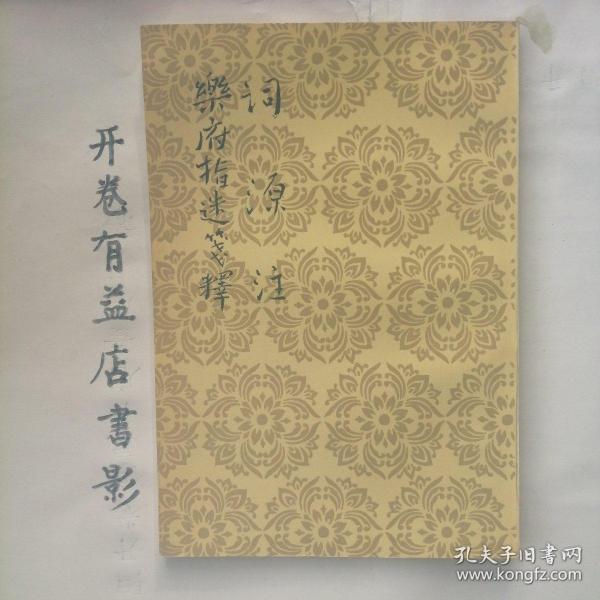 词源注
樂府指迷箋釋
开卷有益店書影
孔夫子旧书网
www.kongfz.com